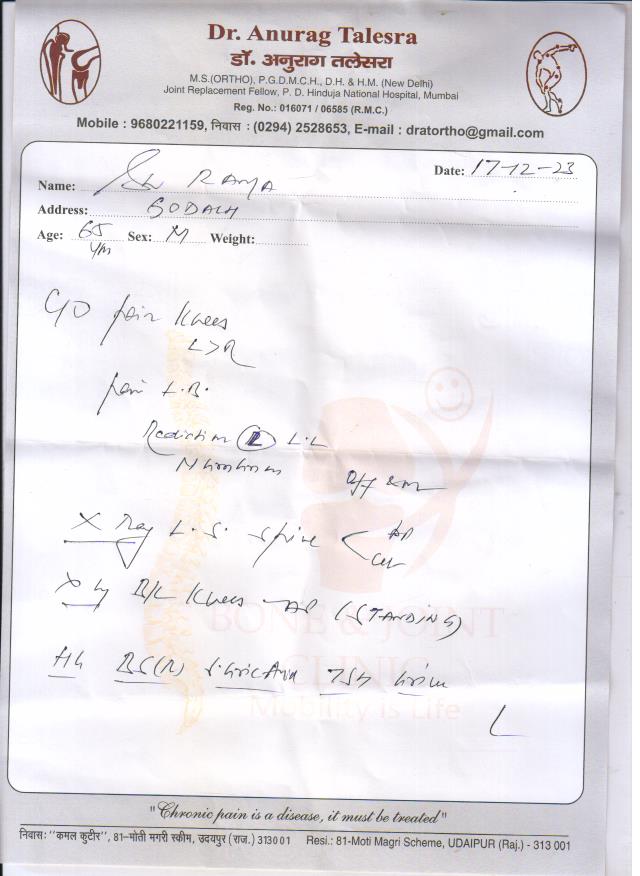 Dr. Anurag Talesra
डॉ. अनुराग तलेसरा
M.S.(ORTHO), P.G.D.M.C.H., D.H. & H.M. (New Delhi)
Joint Replacement Fellow, P. D. Hinduja National Hospital, Mumbai
Reg. No.: 016071 / 06585 (R.M.C.)
Mobile : 9680221159, निवास : (0294) 2528653, E-mail : dratortho@gmail.com
Date: 17-12-23
Name: RAMA
Address:
Age: 65 Sex: M Weight:
C/O pain Knees
L>R
pain L.B.
L L.L
X Ray L.S. spine AP
X Ray B/L Knees AP (STANDING)
BONE & JOINT
CLINIC
Mobility is Life
"Chronic pain is a disease, it must be treated"
निवास: "कमल कुटीर", 81-मोती मगरी स्कीम, उदयपुर (राज.) 313001 Resi.: 81-Moti Magri Scheme, UDAIPUR (Raj.) - 313 001